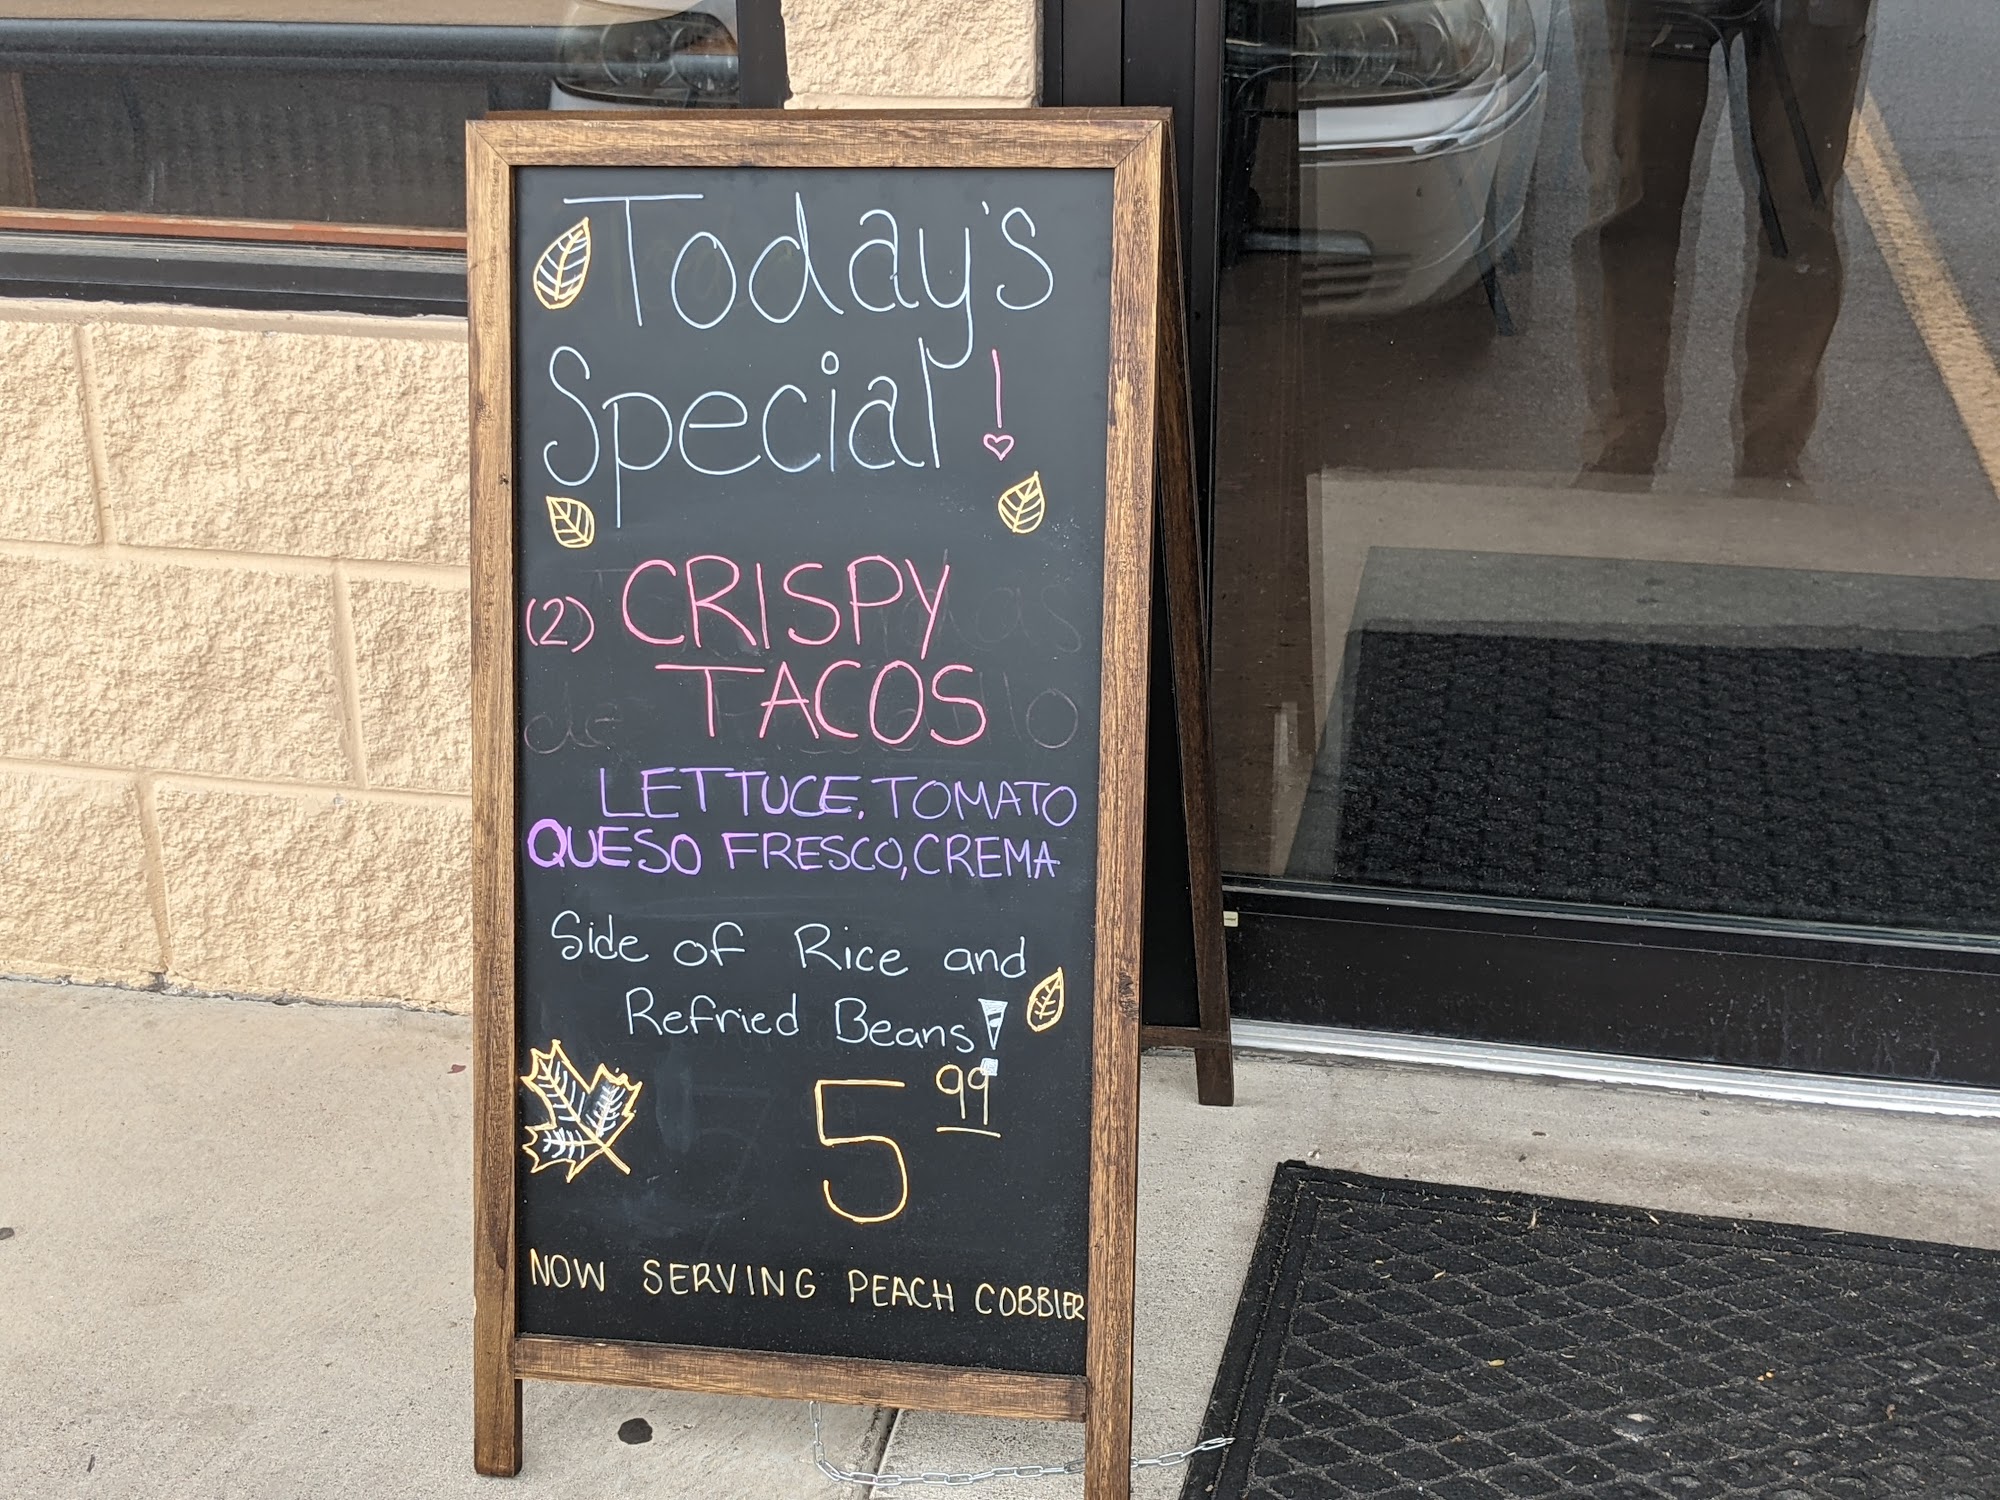 Today's
Special!
(2) CRISPY
TACOS
LETTUCE, TOMATO
QUESO FRESCO, CREMA
Side of Rice and
Refried Beans!
5 99
NOW SERVING PEACH COBBLER